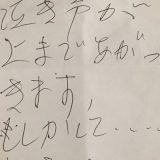 泣き声が
とまであがっ
きます,
もしかして‥‥